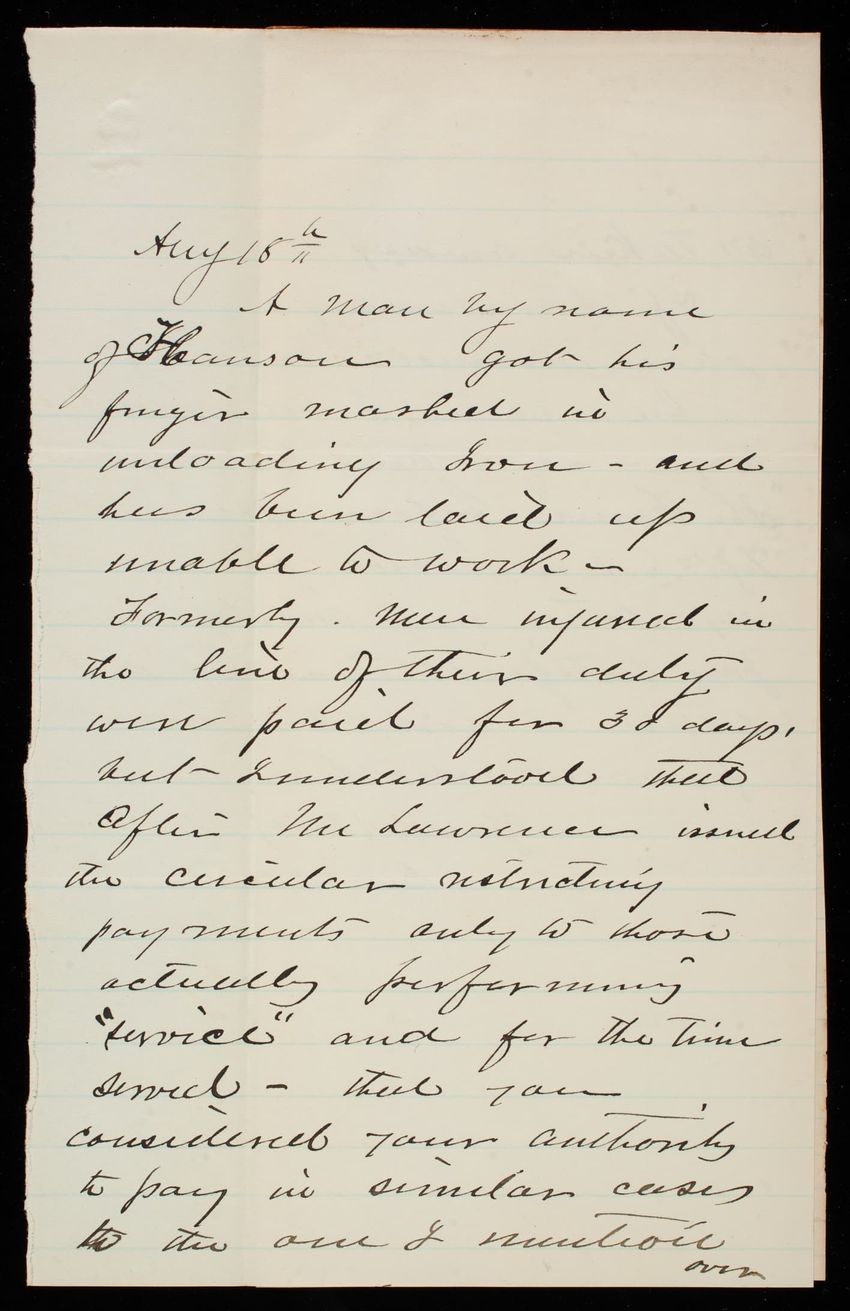 Aug 18th
A man by name
of Hanson got his
finger mashed in
unloading Iron - and
has been laid up
unable to work -
Formerly. men injured in
the line of their duty
were paid for 30 days,
but I understood that
after Mr Lawrence issued
the circular restricting
payments only to those
actually performing
"service" and for the time
served - that you
considered your authority
to pay in similar cases
to the one I mention
over